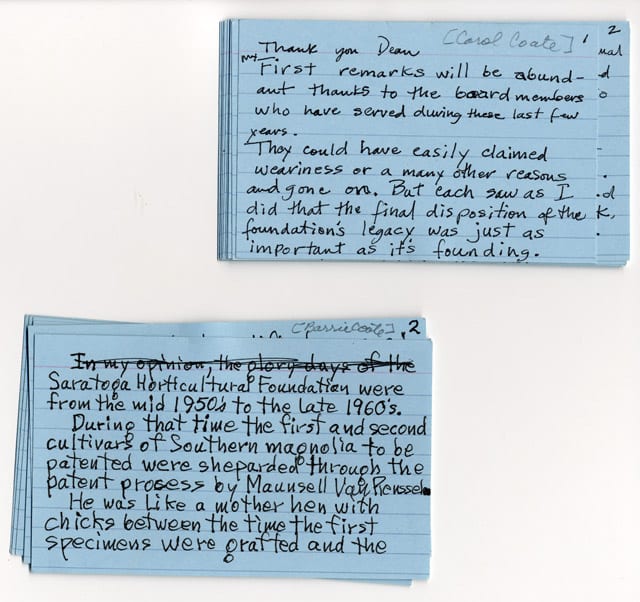 [Carol Coate] 1 2
Thank you Dean
My First remarks will be abund-
ant thanks to the board members
who have served during these last few
years.
They could have easily claimed
weariness or a many other reasons
and gone on. But each saw as I
did that the final disposition of the
foundation's legacy was just as
important as it's founding.
ual
d
o
.
.d
k,
.
[Barrie Coate] 2
In my opinion, the glory days of the
Saratoga Horticultural Foundation were
from the mid 1950's to the late 1960's.
During that time the first and second
cultivars of Southern magnolia to be
patented were sheparded through the
patent prosess by Maunsell Van Renssel
He was like a mother hen with
chicks between the time the first
specimens were grafted and the